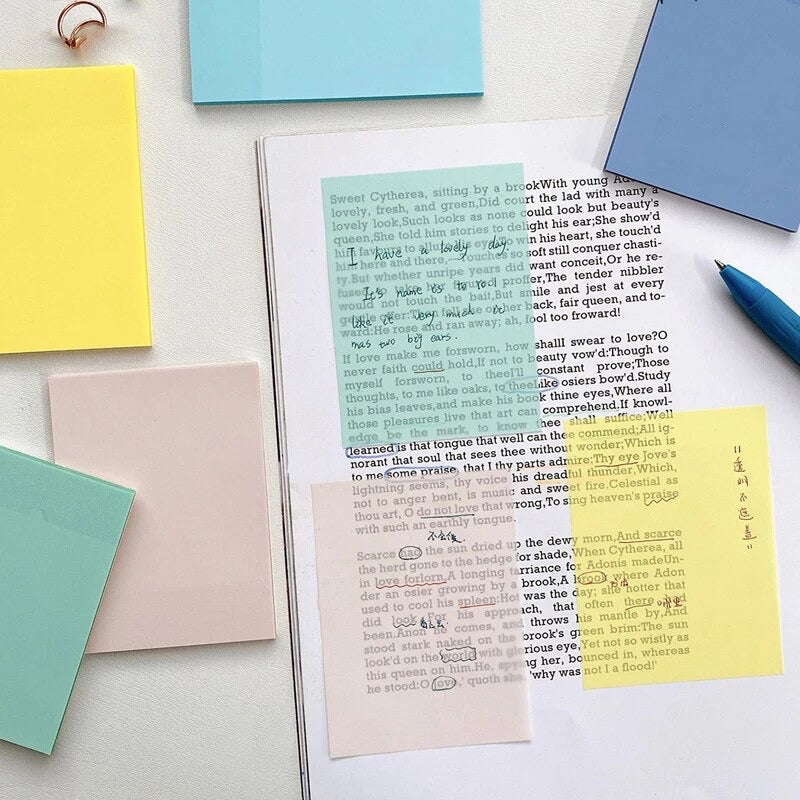 Sweet Cytherea, sitting by a brookWith young Ado
lovely, fresh, and green,Did court the lad with many a
lovely look,Such looks as none could look but beauty's
queen,She told him stories to delight his ear;She show'd
him favours to allure his eye;To win his heart, she touch'd
him here and there, touches so soft still conquer chasti-
ty.But whether unripe years did want conceit,Or he re-
fused to take her figured proffer,The tender nibbler
would not touch the bait,But smile and jest at every
gentle offer:Then fell she on her back, fair queen, and to-
ward:He rose and ran away; ah, fool too froward!
I have a lovely day.
It's name is to roll
like it very much it
has two big ears.
If love make me forsworn, how shalll swear to love?O
never faith could hold,If not to beauty vow'd:Though to
myself forsworn, to thee'll constant prove;Those
thoughts, to me like oaks, to theeLike osiers bow'd.Study
his bias leaves,and make his book thine eyes,Where all
those pleasures live that art can comprehend.If knowl-
edge be the mark, to know thee shall suffice;Well
learned is that tongue that well can thee commend;All ig-
norant that soul that sees thee without wonder;Which is
to me some praise, that I thy parts admire:Thy eye Jove's
lightning seems, thy voice his dreadful thunder,Which,
not to anger bent, is music and sweet fire.Celestial as
thou art, O do not love that wrong,To sing heaven's praise
with such an earthly tongue.
"透明不遮盖"
Scarce had the sun dried up the dewy morn,And scarce
the herd gone to the hedge for shade,When Cytherea, all
in love forlorn,A longing tarriance for Adonis madeUn-
der an osier growing by a brook,A brook where Adon
used to cool his spleen:Hot was the day; she hotter that
did look For his approach, that often there had
been.Anon he comes, and throws his mantle by,And
stood stark naked on the brook's green brim:The sun
look'd on the world with glorious eye,Yet not so wistly as
this queen on him.He, spying her, bounced in, whereas
he stood:O Jove,' quoth she, 'why was not I a flood!'